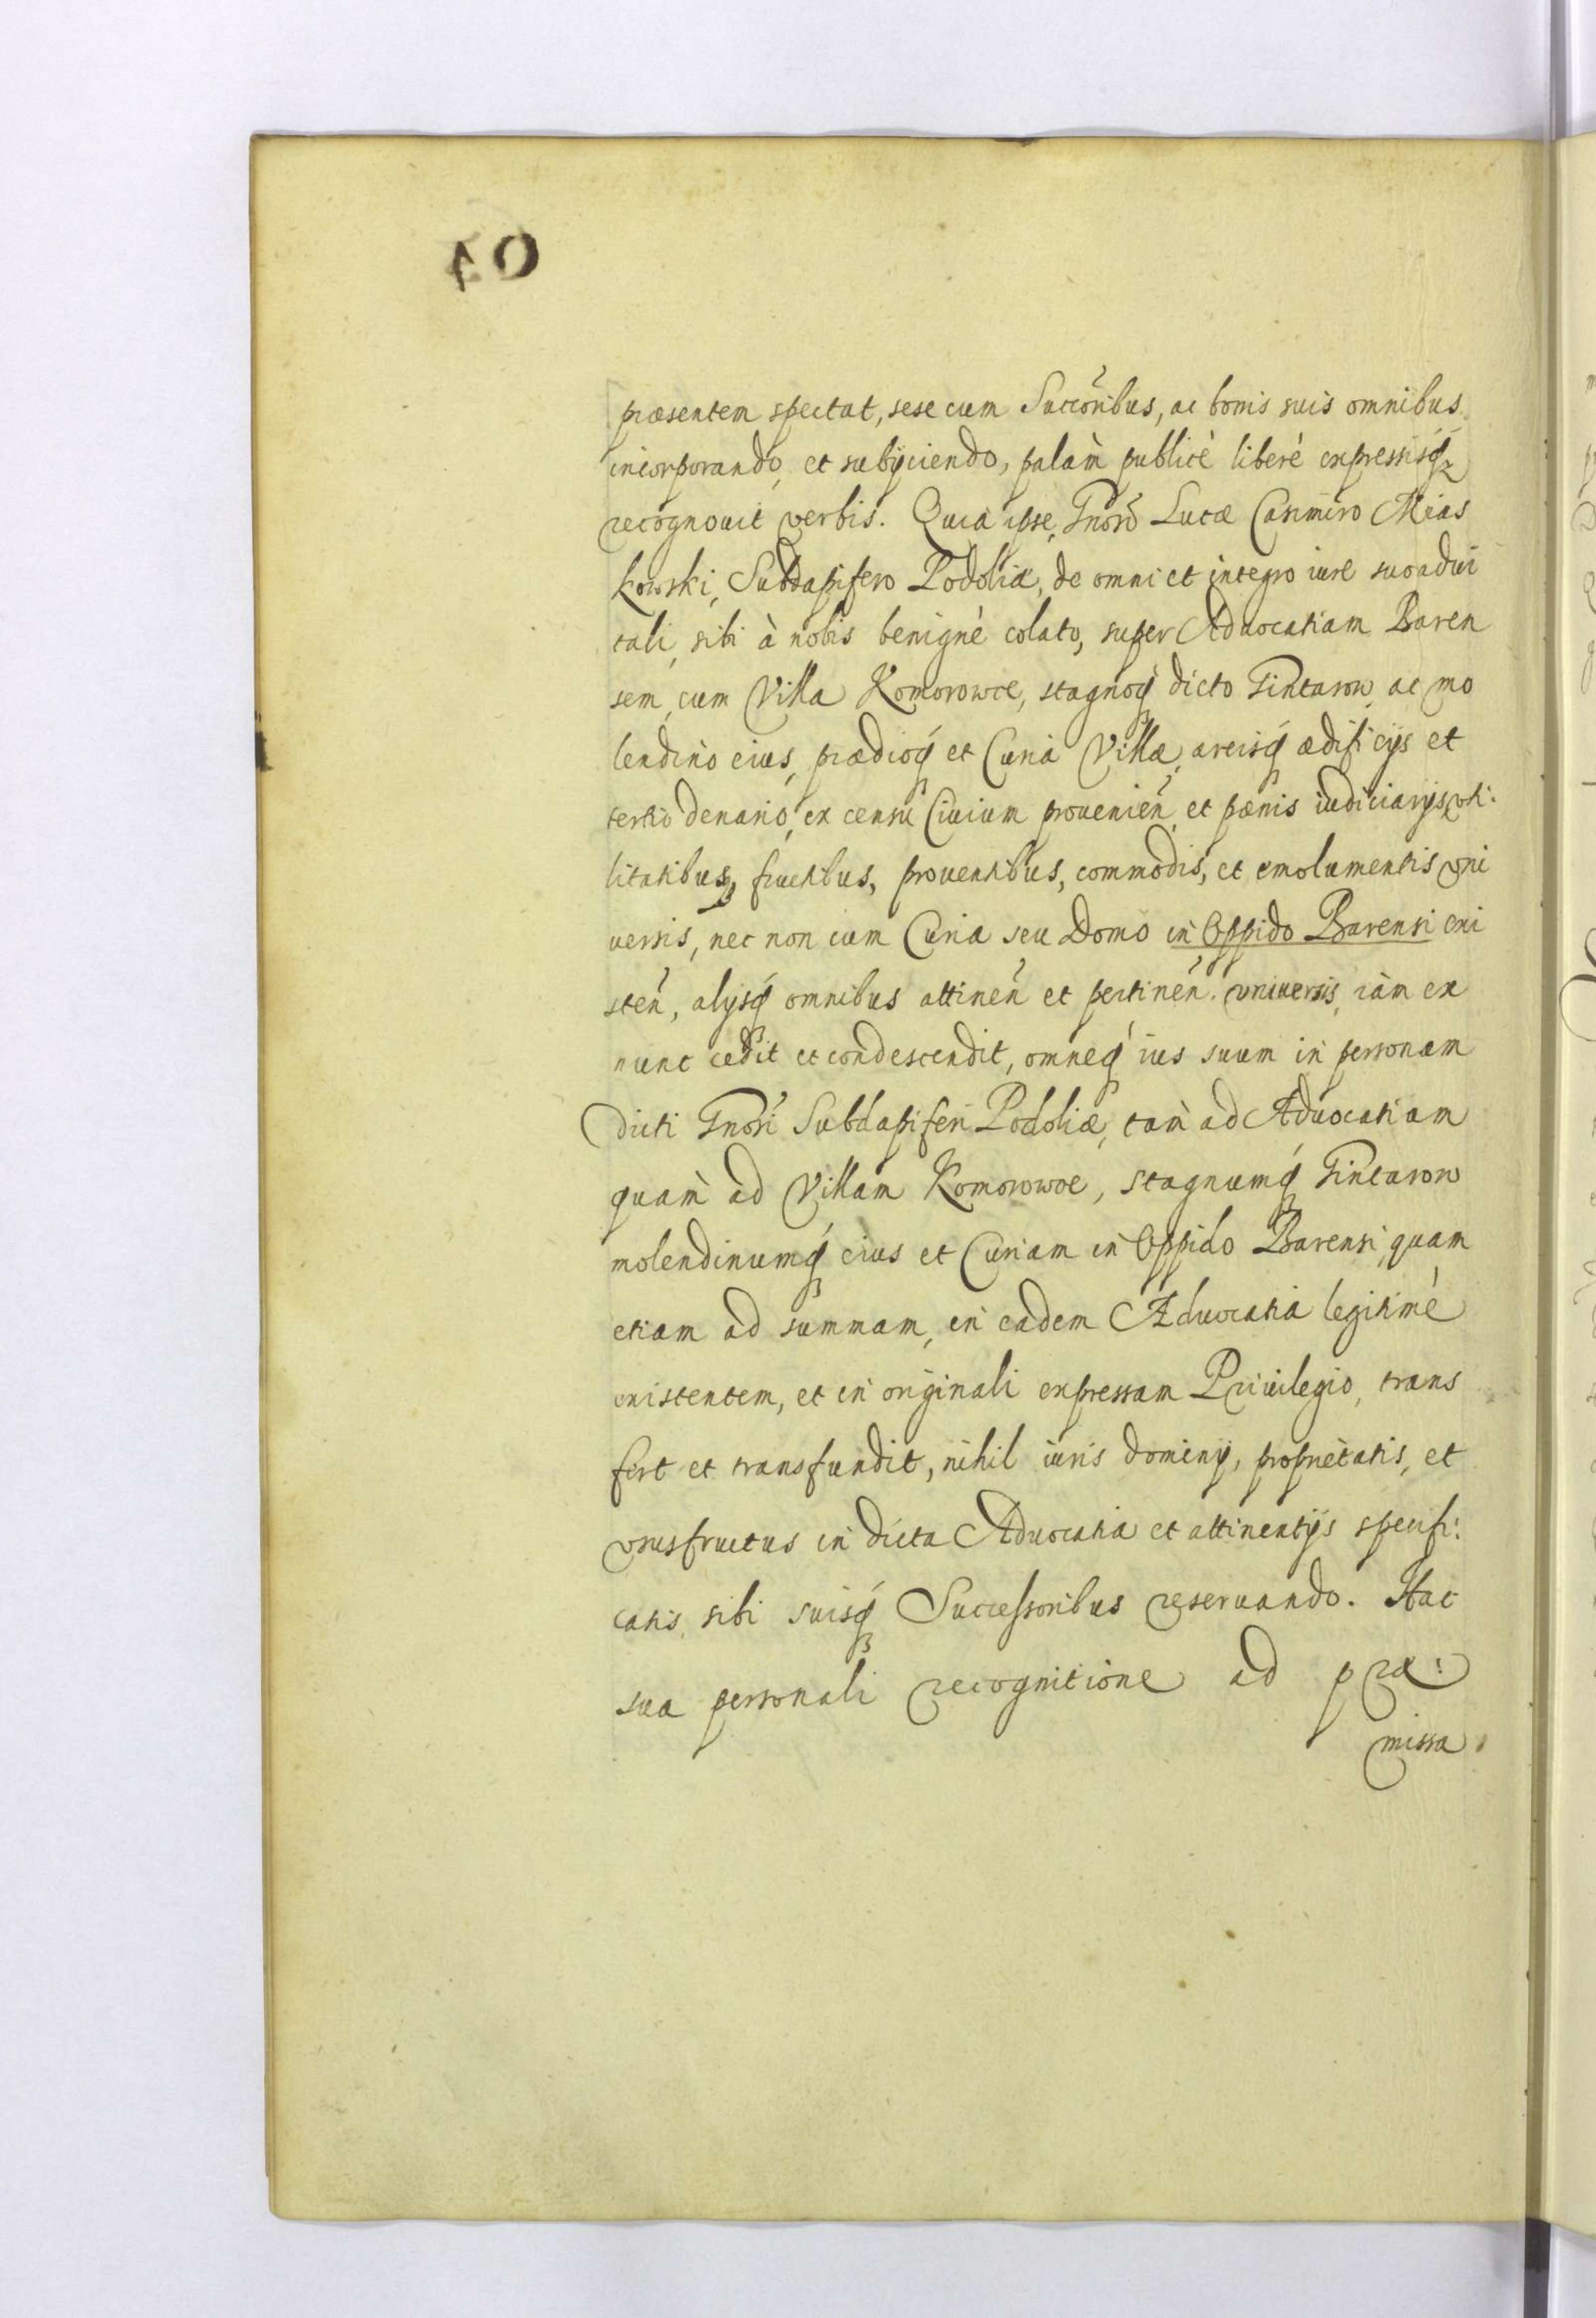 præsentem spectat, sese cum Succõribus, ac bonis suis omnibus
incorporando, et subijciendo, palàm publicè liberè expressisq́
recognouit verbis. Quia ipse, Gnõso Lucæ Casimiro Mias
kowski, Subdapifero Podoliæ, de omni et integro iure suo adui
tali, sibi à nobis benignè colato, super Aduocatiam Baren
sem, cum Villa Komorowce, stagnoq́ dicto Tintarow, ac mo
lendino eius, prædioq́ et Curia Villæ, areisq́ ædificijs et
tertio denario, ex censu Ciuium prouenień, et pænis iudiciarijs vti:
litatibus, fructibus, prouentibus, commodis, et emolumentis vni
uersis, nec non cum Curia seu Domo in Oppido Barensi exi
steń, alijsq́ omnibus attineń et pertineń. vniuersis, iàm ex
nunc cedit et condescendit, omneq́ ius suum in personam
dicti Gnõsi Subdapiferi Podoliæ, tam̀ ad Aduocatiam
quam̀ ad Villam Komorowce, stagnumq́ Tintarow
molendinumq́ eius et Curiam in Oppido Barensi, quam
etiam ad summam, in eadem Aduocatia legitimè
existentem, et in originali expressam Priuilegio, trans
fert et transfundit, nihil iuris dominij, proprietatis, et
vsusfructus in dicta Aduocatia et attinentijs specifi:
catis, sibi suisq́ Successoribus reseruando. Hac
sua personali recognitione ad præ:
missa